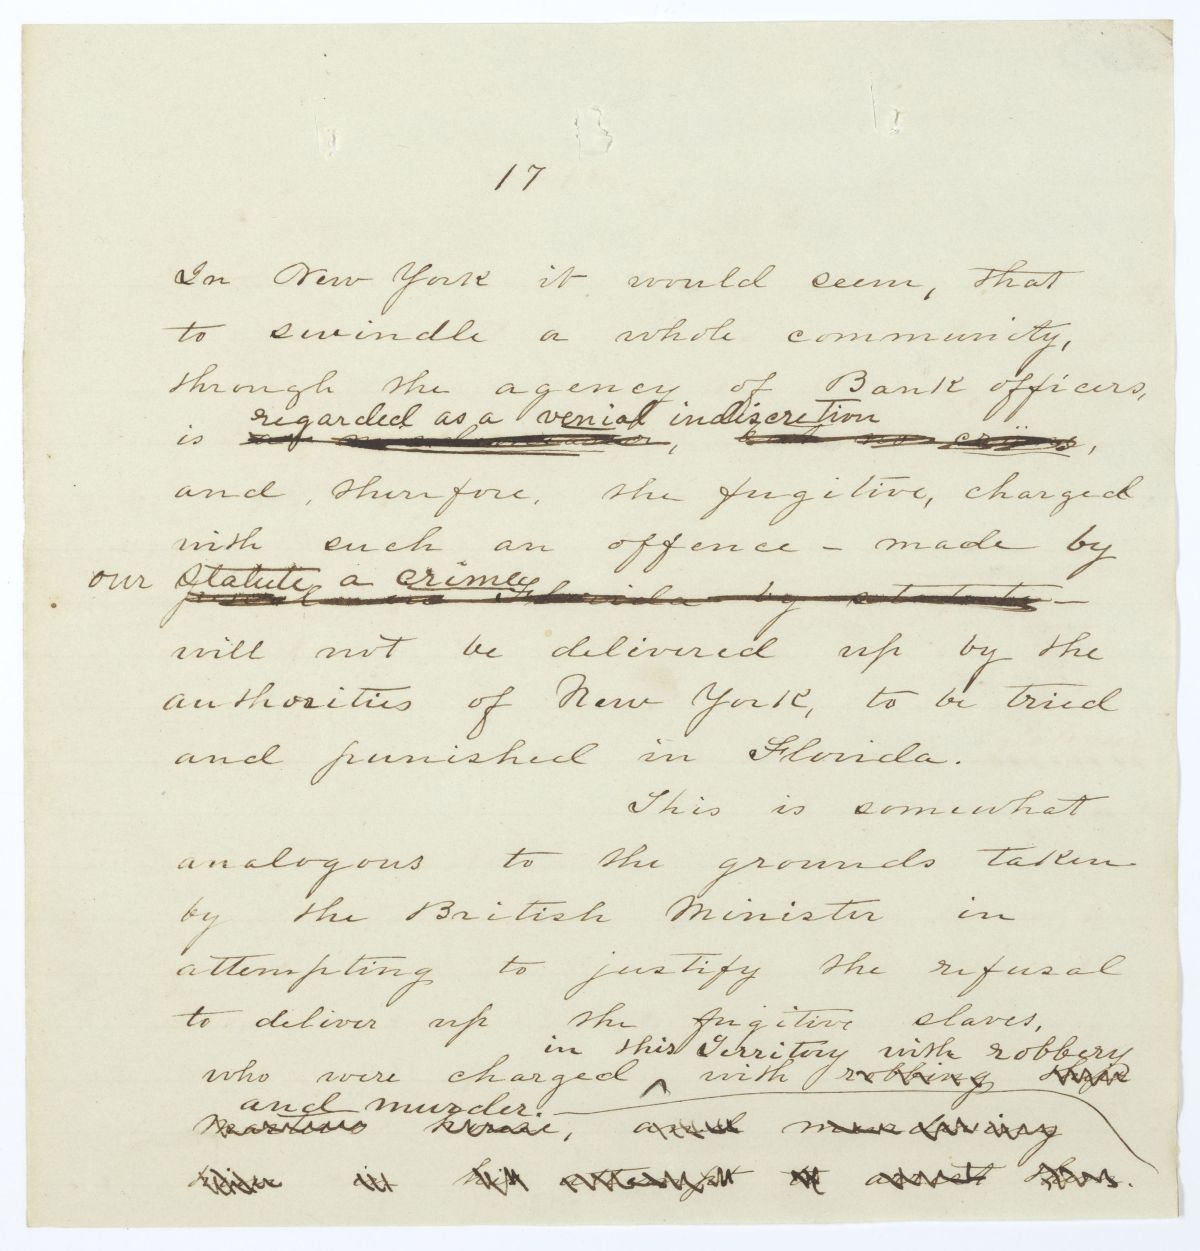 17
In New York it would seem, that
to swindle a whole community,
through the agency of Bank officers,
regarded as a venial indiscretion
is
and, therefore, the fugitive, charged
with such an offence - made by
our Statute a crime,
Florida by statute -
will not be delivered up by the
authorities of New York, to be tried
and punished in Florida.
This is somewhat
analogous to the grounds taken
by the British Minister in
attempting to justify the refusal
to deliver up the fugitive slaves,
in this Territory with robbery
who were charged ^ with robbing their
and murder.
masters house, and murdering
in his attempt to arrest them.